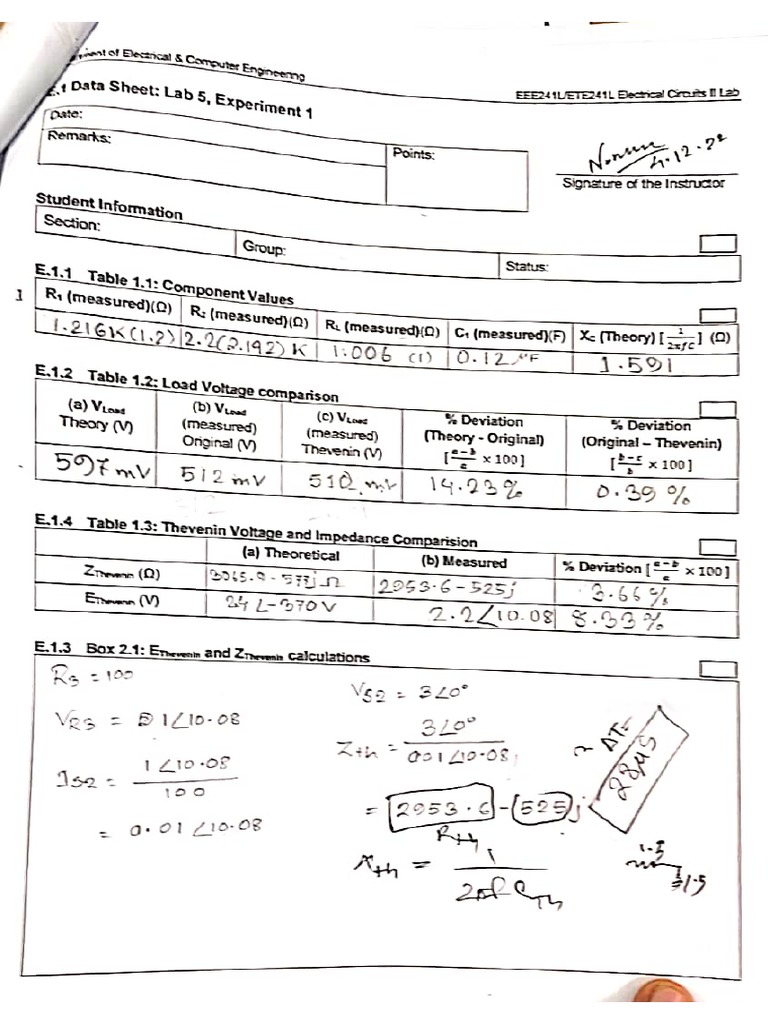 ment of Electrical & Computer Engineering
EEE241L/ETE241L Electrical Circuits II Lab
E.1 Data Sheet: Lab 5, Experiment 1
Date:
Remarks:
Points:
4.12.22
Signature of the Instructor
Student Information
Section:
Group:
Status:
E.1.1 Table 1.1: Component Values
1
R₁ (measured)(Ω) R₂ (measured)(Ω) R_L (measured)(Ω) C₁ (measured)(F) X_C (Theory) [1/2πfC] (Ω)
1.216K (1.2) 2.2(2.192) K 1.006 (1) 0.12 μF 1.591
E.1.2 Table 1.2: Load Voltage comparison
(a) V_Load Theory (V)
(b) V_Load (measured) Original (V)
(c) V_Load (measured) Thevenin (V)
% Deviation (Theory - Original) [a-b/a x 100]
% Deviation (Original – Thevenin) [b-c/b x 100]
597 mV 512 mV 510 mV 14.23 % 0.39 %
E.1.4 Table 1.3: Thevenin Voltage and Impedance Comparision
(a) Theoretical (b) Measured % Deviation [a-b/a x 100]
Z_Thevenin (Ω) 3065.9 - 577j Ω 2953.6-525j 3.66 %
E_Thevenin (V) 2.2∠10.08 8.33 %
E.1.3 Box 2.1: E_Thevenin and Z_Thevenin calculations
R3 = 100
V_R3 = 1∠10.08
I_S2 = 1∠10.08 / 100
= 0.01∠10.08
V_S2 = 3∠0°
Z_th = 3∠0° / 0.01∠10.08
= 2953.6 - 525j
R_th
X_th = 1 / 2πf C_Th
ΔT=
28μS
1.5
=1.5